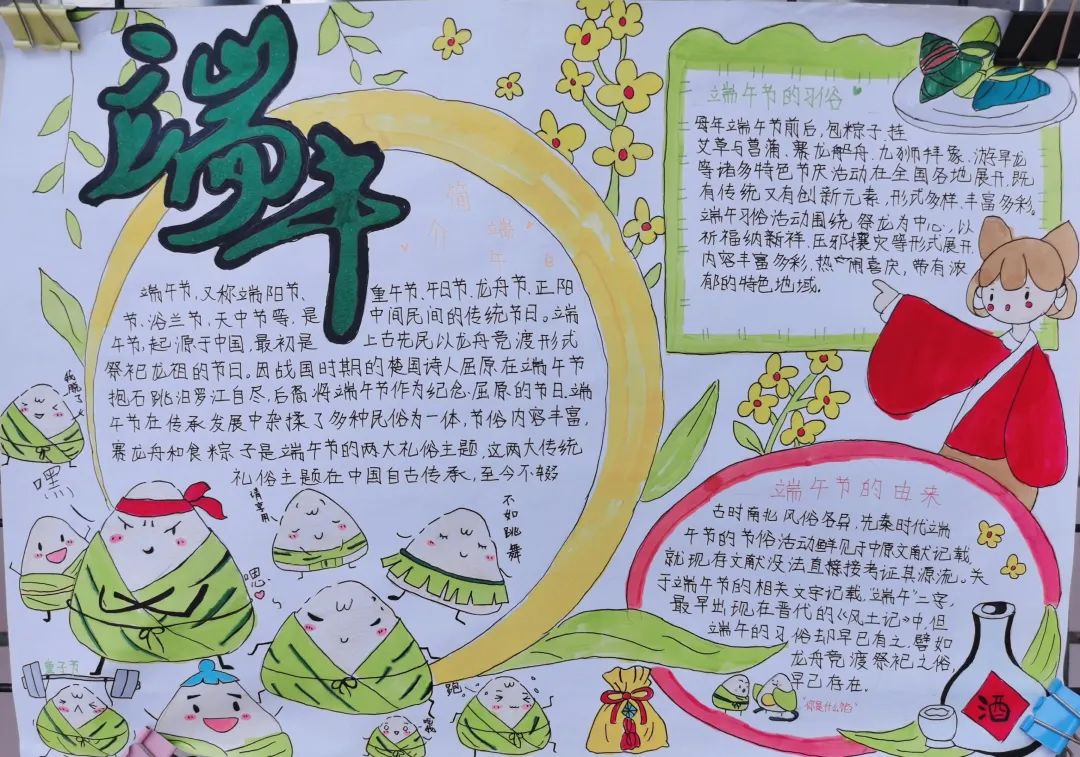 端午
简介
端午日
端午节,又称端阳节、重午节、午日节、龙舟节、正阳
节、浴兰节、天中节等,是中间民间的传统节日。端
午节,起源于中国,最初是上古先民以龙舟竞渡形式
祭祀龙祖的节日。因战国时期的楚国诗人屈原在端午节
抱石跳汨罗江自尽,后裔将端午节作为纪念屈原的节日,端
午节在传承发展中杂揉了多种民俗为一体,节俗内容丰富,
赛龙舟和食粽子是端午节的两大礼俗主题,这两大传统
礼俗主题在中国自古传承,至今不辍
端午节的习俗
每年端午节前后,包粽子、挂
艾草与菖蒲、赛龙船舟、九狮拜象、游旱龙
等诸多特色节庆活动在全国各地展开,既
有传统又有创新元素,形式多样、丰富多彩。
端午习俗活动围绕祭龙为中心,以
祈福纳新祥、压邪攘灾等形式展开,
内容丰富多彩,热闹喜庆,带有浓
郁的特色地域。
端午节的由来
古时南北风俗各异,先秦时代端
午节的节俗活动鲜见于中原文献记载,
就现存文献没法直接接考证其源流。关
于端午节的相关文字记载,"端午"二字,
最早出现在晋代的《风土记》中,但
端午的习俗却早已有之,譬如
龙舟竞渡祭祀之俗,
早已存在。
我脱了
嘿
请享用
不如跳舞
嗯
童子节
跑
嘿嘿
"你是什么馅"
酒